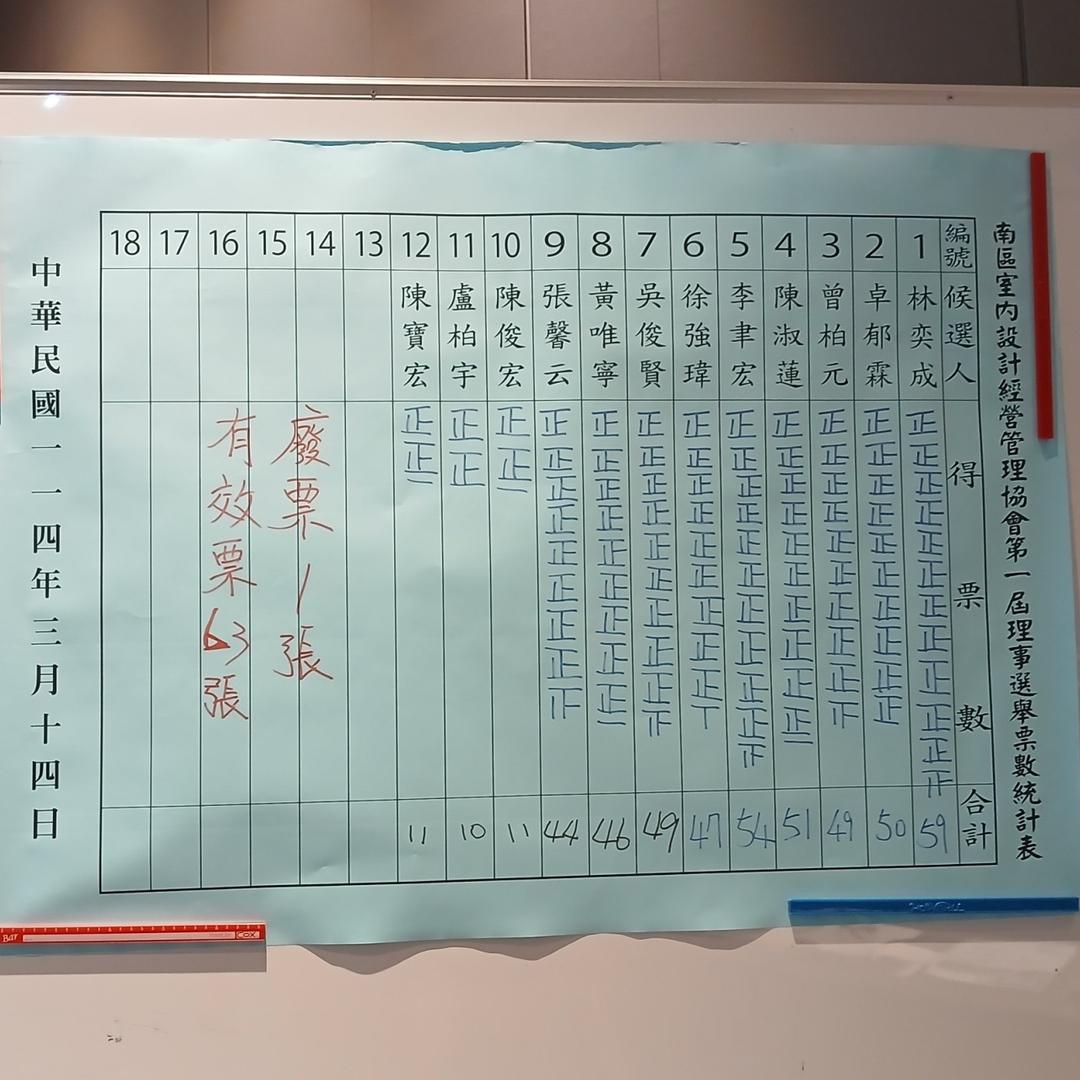 南區室內設計經營管理協會第一屆理事選舉票數統計表
編號 1 2 3 4 5 6 7 8 9 10 11 12 13 14 15 16 17 18
候選人
林奕成
卓郁霖
曾柏元
陳淑蓮
李聿宏
徐強瑋
吳俊賢
黃唯寧
張馨云
陳俊宏
盧柏宇
陳寶宏
得票數
正正正正正正正正正正正
正正正正正正正正正正
正正正正正正正正正
正正正正正正正正正正
正正正正正正正正正正
正正正正正正正正正
正正正正正正正正正
正正正正正正正正正
正正正正正正正正
正正
正正
正正
廢票1張
有效票63張
合計 59 50 49 51 54 47 49 46 44 11 10 11
中華民國一一四年三月十四日
Bar
COX